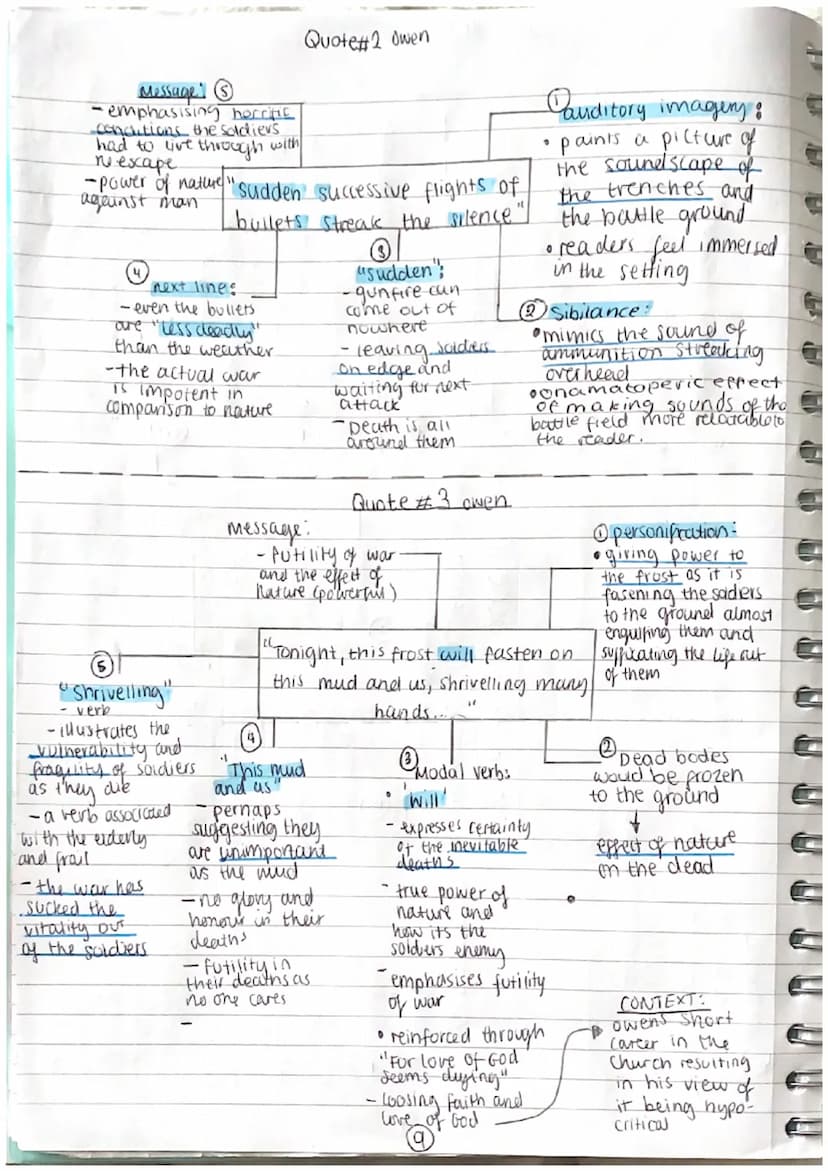 Quote#2 Owen
Message: ⑤
- emphasising horrific
conditions the soldiers
had to live through with
no escape
- power of nature
against man
"Sudden successive flights of
bullets streak the silence"
① auditory imagery:
• paints a picture of
the soundscape of
the trenches and
the battle ground
• readers feel immersed
in the setting
④
next line:
- even the bullets
are "less deadly"
than the weather
- the actual war
is impotent in
comparison to nature
③
"sudden":
- gunfire can
come out of
nowhere
- leaving soldiers
on edge and
waiting for next
attack
- Death is all
around them
② Sibilance:
• mimics the sound of
ammunition streaking
overhead
• onamatoperic effect
of making sounds of the
battle field more relatable to
the reader.
Quote #3 owen
Message:
- futility of war
and the effect of
Nature (powerful)
① personification:
• giving power to
the frost as it is
fasening the soiders
to the ground almost
engulfing them and
sufficating the life out
of them
"Tonight, this frost will fasten on
this mud and us, shrivelling many
hands..."
⑤
"Shrivelling"
- verb
- illustrates the
vulnerability and
fragility of soldiers
as they die
- a verb associated
with the elderly
and frail
- the war has
sucked the
vitality out
of the soldiers
④
"This mud
and us"
- perhaps
suggesting they
are unimportant
as the mud
- no glory and
honour in their
deaths
- futility in
their deaths as
no one cares
-
③ Modal verb:
• "will"
- expresses certainty
of the inevitable
deaths
- true power of
nature and
how its the
soldiers enemy
- emphasises futility
of war
• reinforced through
"For love of God
seems dying"
- loosing faith and
love of God
⑨
② Dead bodies
would be frozen
to the ground
effect of nature
on the dead
CONTEXT:
owens short
career in the
Church resulting
in his view of
it being hypo-
critical